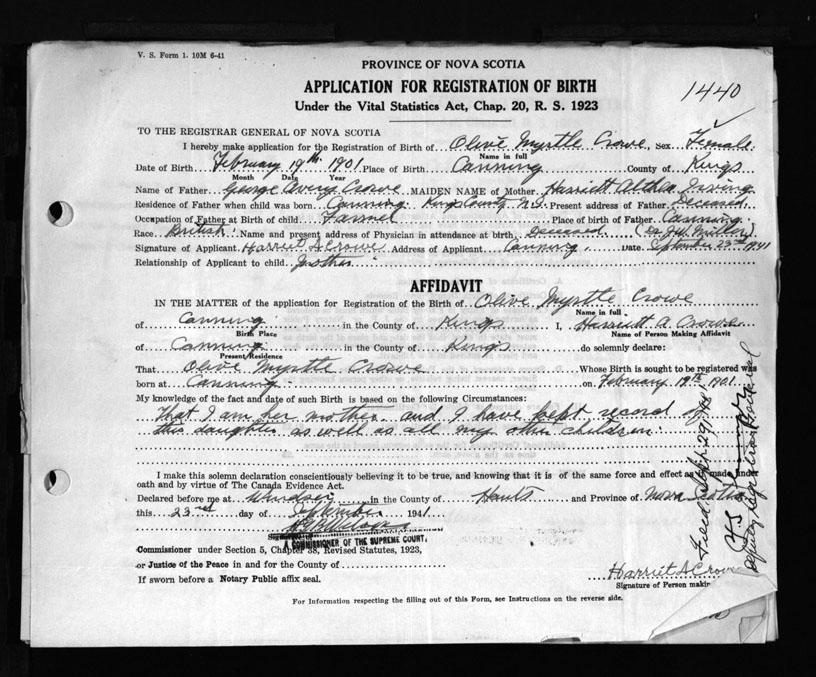 V. S. Form 1. 10M 6-41
PROVINCE OF NOVA SCOTIA
APPLICATION FOR REGISTRATION OF BIRTH
1440
Under the Vital Statistics Act, Chap. 20, R. S. 1923
TO THE REGISTRAR GENERAL OF NOVA SCOTIA
I hereby make application for the Registration of Birth of Olive Myrtle Crowe, Sex Female
Name in full
Date of Birth February 19th 1901 Place of Birth Canning County of Kings
Month Date Year
Name of Father George Avery Crowe MAIDEN NAME of Mother Harriett Althea Irving
Residence of Father when child was born Canning Kings County N.S. Present address of Father Deceased
Occupation of Father at Birth of child Farmer Place of birth of Father Canning
Race British Name and present address of Physician in attendance at birth Deceased (Dr. Miller)
Signature of Applicant Harriet A Crowe Address of Applicant Canning Date September 23rd 1941
Relationship of Applicant to child Mother
AFFIDAVIT
IN THE MATTER of the application for Registration of the Birth of Olive Myrtle Crowe
Name in full
of Canning in the County of Kings I, Harriett A. Crowe
Birth Place Name of Person Making Affidavit
of Canning in the County of Kings do solemnly declare:
Present Residence
That Olive Myrtle Crowe Whose Birth is sought to be registered was
born at Canning on February 19th 1901
My knowledge of the fact and date of such Birth is based on the following Circumstances:
That I am her mother and I have kept record of
this daughter as well as all my other children.
I make this solemn declaration conscientiously believing it to be true, and knowing that it is of the same force and effect as if made under
oath and by virtue of The Canada Evidence Act.
Declared before me at Windsor in the County of Hants and Province of Nova Scotia
this 23rd day of September 1941
A COMMISSIONER OF THE SUPREME COURT.
Commissioner under Section 5, Chapter 38, Revised Statutes, 1923,
or Justice of the Peace in and for the County of
If sworn before a Notary Public affix seal.
Harriet A Crowe
Signature of Person makin
For Information respecting the filling out of this Form, see Instructions on the reverse side.
Filed Sept. 29/41
Deputy Registrar General